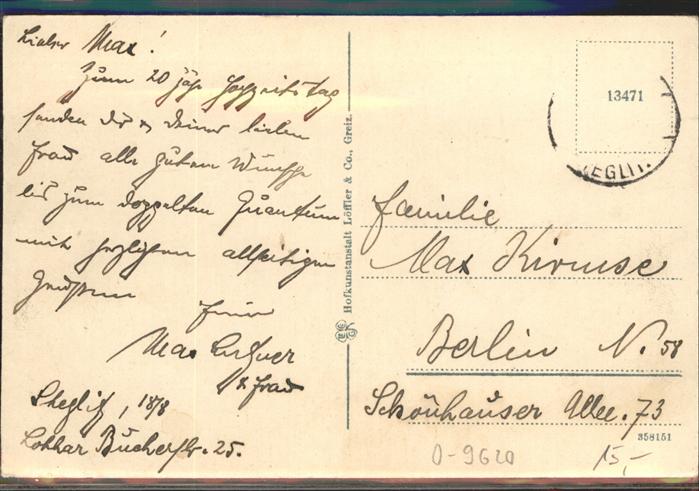 Lieber Max!
Zum 20 jähr Hochzeitstag
senden Dir & Deiner lieben
Frau alle guten Wünsche
bis zum doppelten Quantum
mit herzlichen allseitigen
Grüssen
Max
& Frau
Steglitz, 18/8
Lothar Bucherstr. 25.
Hofkunstanstalt Löffler & Co., Greiz.
13471
Familie
Max Kirmse
Berlin N. 58
Schönhauser Allee. 73
358151
0-9620
15,-